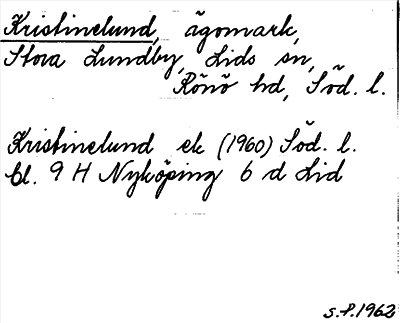 Kristinelund, ägomark,
Stora Lundby, Lids sn,
Rönö hd, Söd. l.
Kristinelund ek (1960) Söd. l.
bl. 9 H Nyköping 6 d Lid
s.f.1962